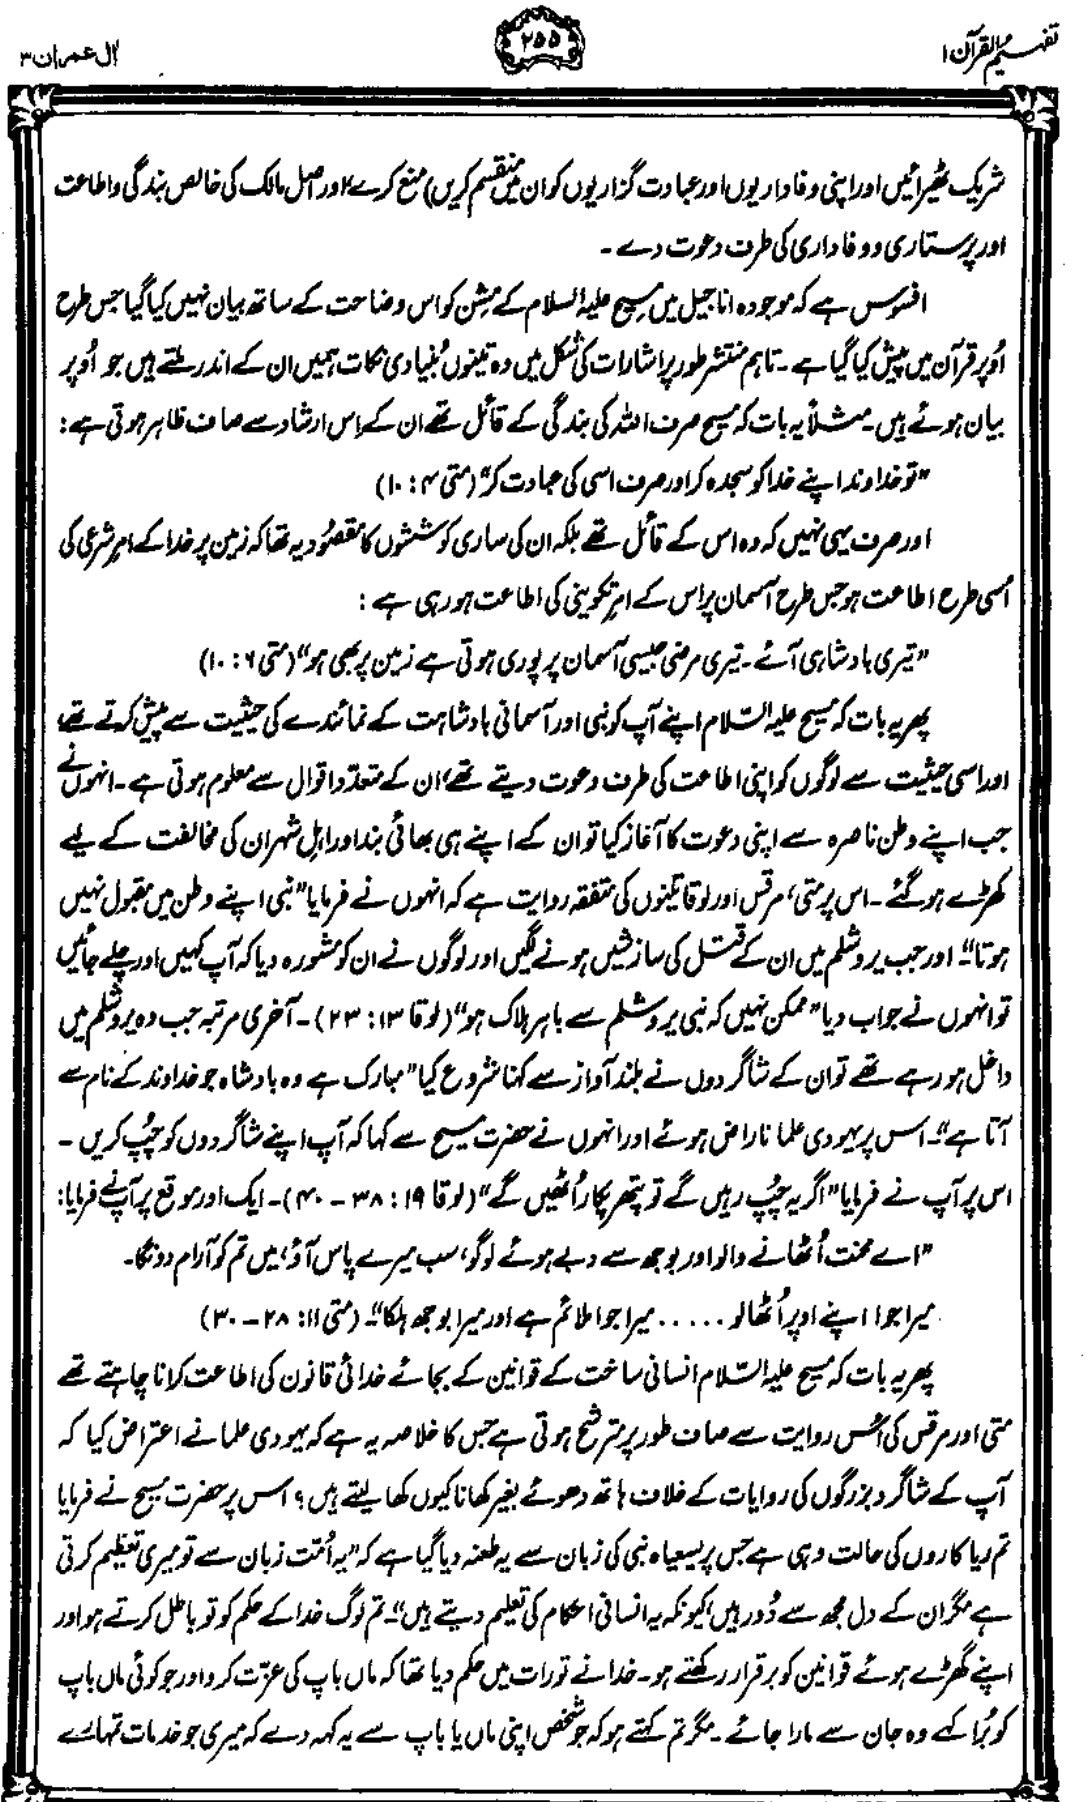 تفہیم القرآن ۱
۲۵۵
اٰل عمران ۳
شریک ٹھیرائیں اور اپنی وفاداریوں اور عبادت گزاریوں کو ان میں منقسم کریں) منع کرے، اور اصل مالک کی خالص بندگی و اطاعت
اور پرستاری و وفاداری کی طرف دعوت دے ۔
افسوس ہے کہ موجودہ اناجیل میں مسیح علیہ السلام کے مشن کو اس وضاحت کے ساتھ بیان نہیں کیا گیا جس طرح
اُوپر قرآن میں پیش کیا گیا ہے ۔ تاہم منتشر طور پر اشارات کی شکل میں وہ تینوں بُنیادی نکات ہمیں ان کے اندر ملتے ہیں جو اُوپر
بیان ہوئے ہیں۔ مثلاً یہ بات کہ مسیح صرف اللہ کی بندگی کے قائل تھے ان کے اس ارشاد سے صاف ظاہر ہوتی ہے :
”تو خداوند اپنے خدا کو سجدہ کر اور صرف اسی کی عبادت کر“ (متی ۴ : ۱۰)
اور صرف یہی نہیں کہ وہ اس کے قائل تھے بلکہ ان کی ساری کوششوں کا مقصُود یہ تھا کہ زمین پر خدا کے امرِ شرعی کی
اُسی طرح اطاعت ہو جس طرح آسمان پر اس کے امرِ تکوینی کی اطاعت ہو رہی ہے :
”تیری بادشاہی آئے ۔ تیری مرضی جیسی آسمان پر پوری ہوتی ہے زمین پر بھی ہو“ (متی ۶ : ۱۰)
پھر یہ بات کہ مسیح علیہ السّلام اپنے آپ کو نبی اور آسمانی بادشاہت کے نمائندے کی حیثیت سے پیش کرتے تھے،
اور اسی حیثیت سے لوگوں کو اپنی اطاعت کی طرف دعوت دیتے تھے، ان کے متعدّد اقوال سے معلوم ہوتی ہے ۔ انہوں نے
جب اپنے وطن ناصرہ سے اپنی دعوت کا آغاز کیا تو ان کے اپنے ہی بھائی بند اور اہلِ شہر ان کی مخالفت کے لیے
کھڑے ہو گئے ۔ اس پر متی، مرقس اور لوقا تینوں کی متفقہ روایت ہے کہ انہوں نے فرمایا ”نبی اپنے وطن میں مقبول نہیں
ہوتا“۔ اور جب یروشلم میں ان کے قتل کی سازشیں ہونے لگیں اور لوگوں نے ان کو مشورہ دیا کہ آپ کہیں اور چلے جائیں
تو انہوں نے جواب دیا ”ممکن نہیں کہ نبی یروشلم سے باہر ہلاک ہو“ (لوقا ۱۳ : ۲۳) ۔ آخری مرتبہ جب وہ یروشلم میں
داخل ہو رہے تھے تو ان کے شاگردوں نے بلند آواز سے کہنا شروع کیا ”مبارک ہے وہ بادشاہ جو خداوند کے نام سے
آتا ہے“۔ اس پر یہودی علما ناراض ہوئے اور انہوں نے حضرت مسیح سے کہا کہ آپ اپنے شاگردوں کو چُپ کریں ۔
اس پر آپ نے فرمایا ”اگر یہ چُپ رہیں گے تو پتھر پکار اُٹھیں گے“ (لوقا ۱۹ : ۳۸ – ۴۰) ۔ ایک اور موقع پر آپ نے فرمایا:
”اے محنت اُٹھانے والو اور بوجھ سے دبے ہوئے لوگو، سب میرے پاس آؤ، میں تم کو آرام دونگا۔
میرا جوا اپنے اوپر اُٹھالو ..... میرا جوا ملائم ہے اور میرا بوجھ ہلکا“۔ (متی ۱۱: ۲۸ – ۳۰)
پھر یہ بات کہ مسیح علیہ السّلام انسانی ساخت کے قوانین کے بجائے خدائی قانون کی اطاعت کرانا چاہتے تھے
متی اور مرقس کی اُس روایت سے صاف طور پر مترشّح ہوتی ہے جس کا خلاصہ یہ ہے کہ یہودی علما نے اعتراض کیا کہ
آپ کے شاگرد بزرگوں کی روایات کے خلاف ہاتھ دھوئے بغیر کھانا کیوں کھا لیتے ہیں ؟ اس پر حضرت مسیح نے فرمایا
تم ریاکاروں کی حالت وہی ہے جس پر یسعیاہ نبی کی زبان سے یہ طعنہ دیا گیا ہے کہ ”یہ اُمّت زبان سے تو میری تعظیم کرتی
ہے مگر ان کے دل مجھ سے دُور ہیں کیونکہ یہ انسانی احکام کی تعلیم دیتے ہیں“۔ تم لوگ خدا کے حکم کو تو باطل کرتے ہو اور
اپنے گھڑے ہوئے قوانین کو برقرار رکھتے ہو ۔ خدا نے تورات میں حکم دیا تھا کہ ماں باپ کی عزّت کرو اور جو کوئی ماں باپ
کو بُرا کہے وہ جان سے مارا جائے ۔ مگر تم کہتے ہو کہ جو شخص اپنی ماں یا باپ سے یہ کہہ دے کہ میری جو خدمات تمہارے